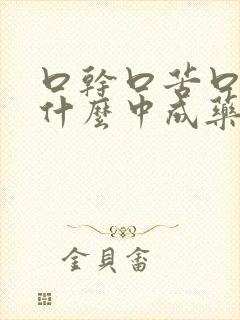 口幹口苦口
什麼中成藥
金貝畲